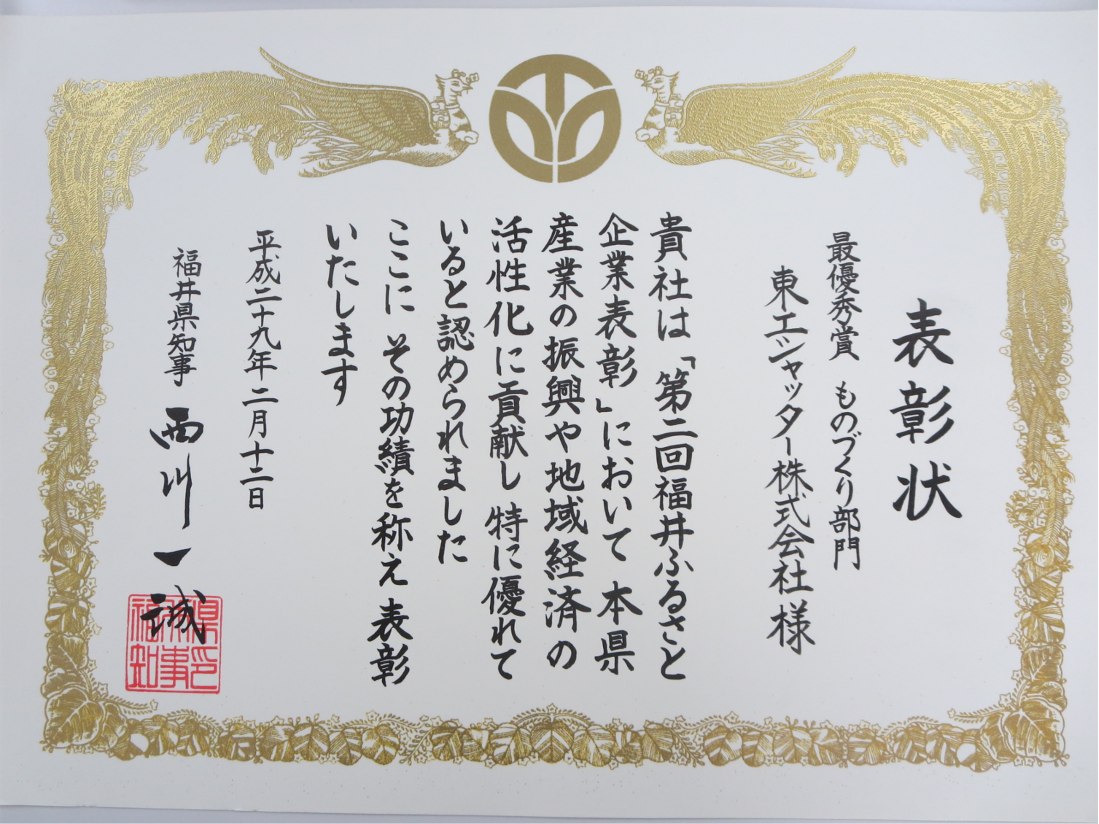 表彰状
最優秀賞 ものづくり部門
東工シャッター株式会社 様
貴社は「第二回福井ふるさと
企業表彰」において 本県
産業の振興や地域経済の
活性化に貢献し 特に優れて
いると認められました
ここに その功績を称え 表彰
いたします
平成二十九年二月十二日
福井県知事 西川一誠
福井県知事印